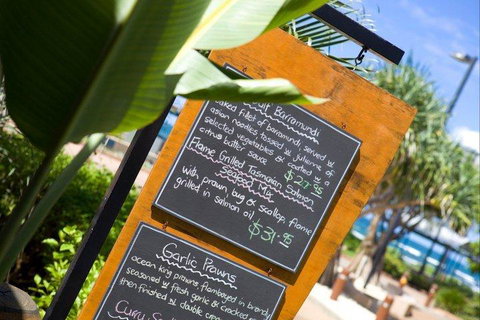 Gulf Barramundi
baked fillet of barramundi, served w
asian noodles tossed w julienne of
selected vegetables & coated w a
citrus butter sauce $27.95
Flame Grilled Tasmanian Salmon
Seafood Mix
with prawn, bug & scallop, flame
grilled in salmon oil $31.95
Garlic Prawns
ocean king prawns flambeyed in brandy
seasoned w fresh garlic & cracked
then finished w double
Curry